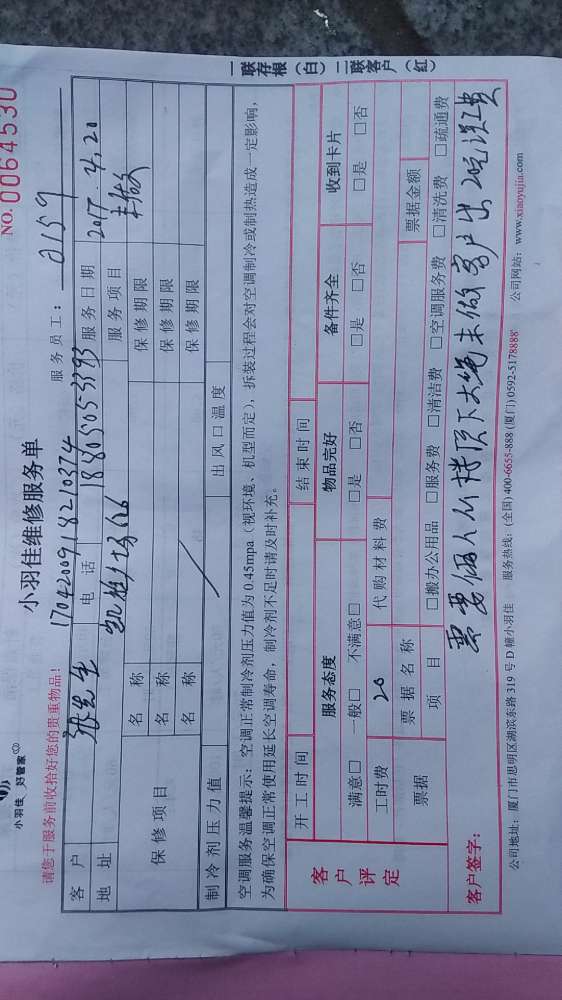 小羽佳 好管家
小羽佳维修服务单
NO. 0064530
请您于服务前收拾好您的贵重物品!
1704200918210374
服务员工: 2159
客户 张先生 电话 18850553793 服务日期 2017.4.20
地址 服务项目 未做
保修项目 名称 保修期限
名称 保修期限
名称 保修期限
制冷剂压力值 出风口温度
空调服务温馨提示: 空调正常制冷剂压力值为0.45mpa(视环境、机型而定), 拆装过程会对空调制冷或制热造成一定影响,
为确保空调正常使用延长空调寿命, 制冷剂不足时请及时补充。
一联存根(白) 二联客户(红)
客户评定
开工时间 结束时间
服务态度 物品完好 备件齐全 收到卡片
满意□ 一般□ 不满意□ □是 □否 □是 □否 □是 □否
工时费 20 代购材料费
票据 票据名称 票据金额
项目 □搬办公用品 □服务费 □清洁费 □空调服务费 □清洗费 □疏通费
客户签字: 需要俩人从楼顶下大绳未做客户出20元误工费
公司地址: 厦门市思明区湖滨东路319号D幢小羽佳 服务热线: (全国)400-6655-888 (厦门)0592-5178888 公司网站: www.xiaoyujia.com